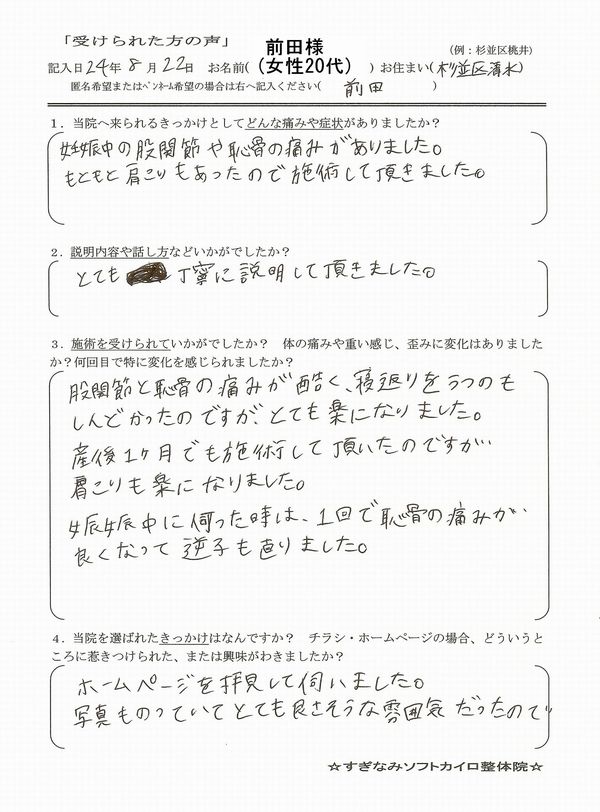 「受けられた方の声」 前田様 (例：杉並区桃井)
記入日24年8月22日 お名前((女性20代) ) お住まい(杉並区清水)
匿名希望またはペンネーム希望の場合は右へ記入ください( 前田 )
1．当院へ来られるきっかけとしてどんな痛みや症状がありましたか？
妊娠中の股関節や恥骨の痛みがありました。
もともと肩こりもあったので施術して頂きました。
2．説明内容や話し方などいかがでしたか？
とても 丁寧に説明して頂きました。
3．施術を受けられていかがでしたか？ 体の痛みや重い感じ、歪みに変化はありました
か？何回目で特に変化を感じられましたか？
股関節と恥骨の痛みが酷く、寝返りをうつのも
しんどかったのですが、とても楽になりました。
産後1ヶ月でも施術して頂いたのですが
肩こりも楽になりました。
妊娠中に伺った時は、1回で恥骨の痛みが
良くなって逆子も直りました。
4．当院を選ばれたきっかけはなんですか？ チラシ・ホームページの場合、どういうと
ころに惹きつけられた、または興味がわきましたか？
ホームページを拝見して伺いました。
写真ものっていてとても良さそうな雰囲気だったので
☆すぎなみソフトカイロ整体院☆